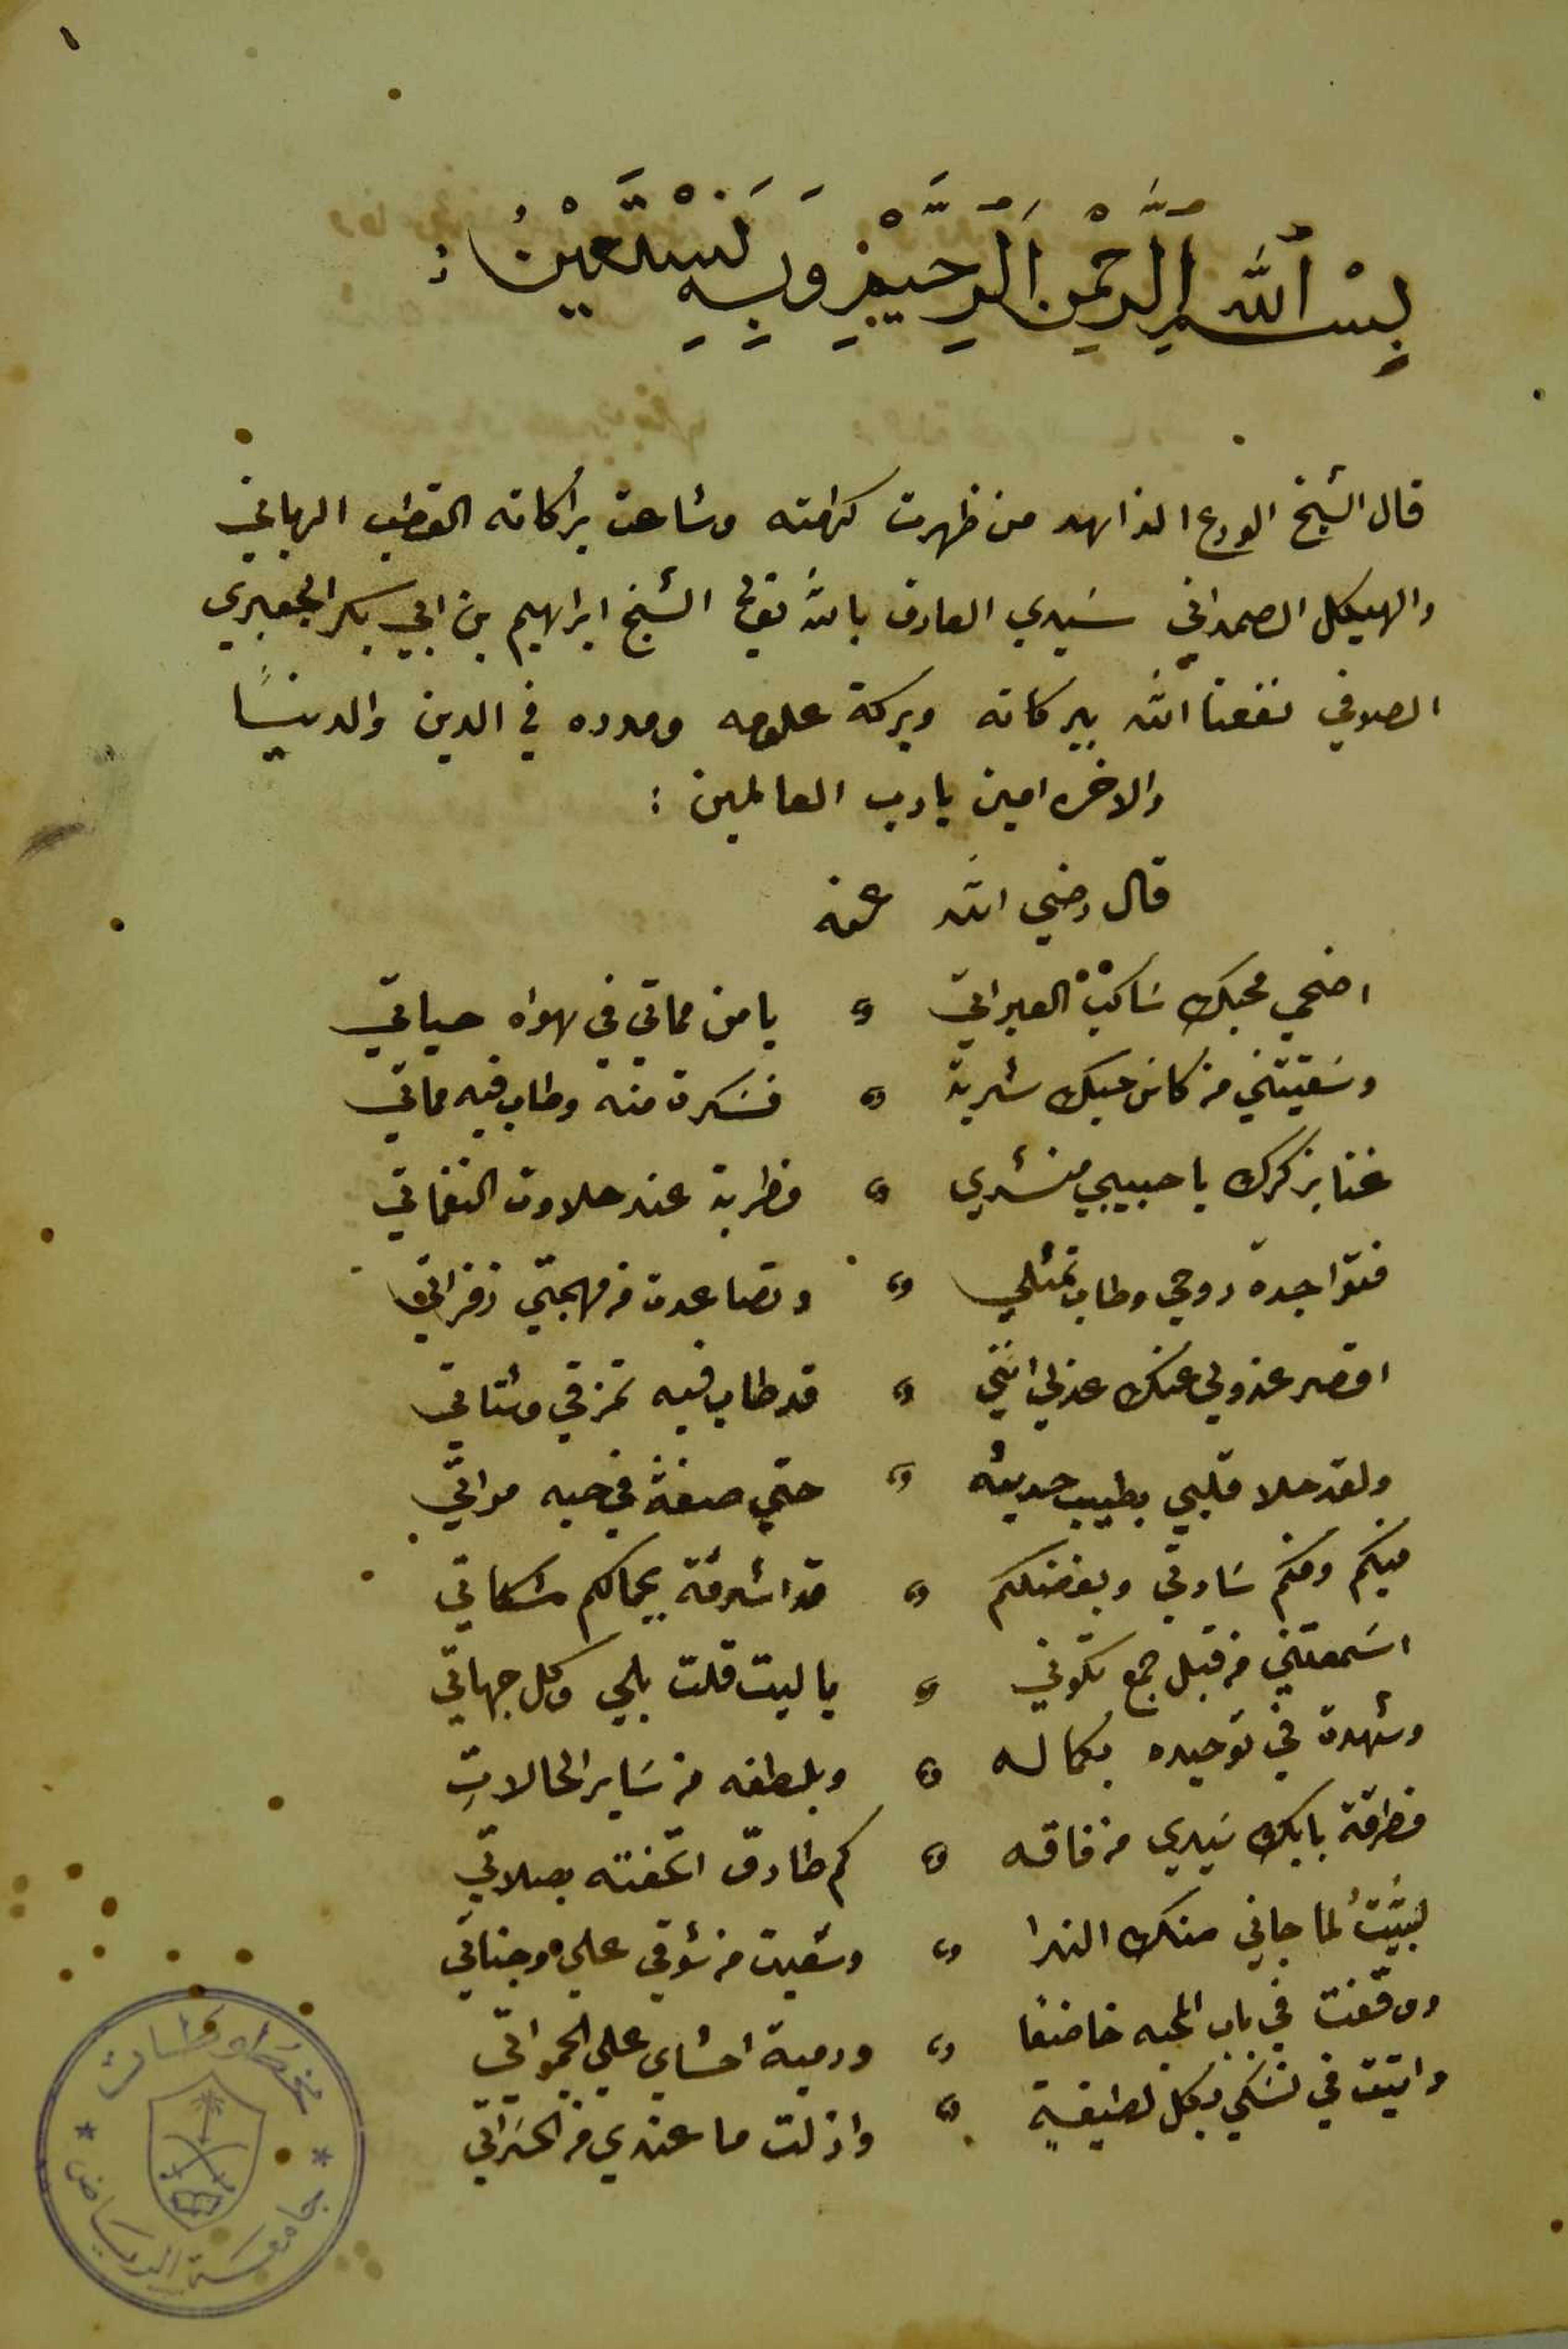 ١
بِسْمِ اللَّهِ الرَّحْمٰنِ الرَّحِيْمِ وَبِهِ نَسْتَعِيْنُ :
قال الشيخ الورع الزاهد من ظهرت كرامته وشاعت براكاته القطب الرباني
والهيكل الصمداني سيدي العارف بالله تعالى الشيخ ابراهيم بن ابي بكر الجعبري
الصلافي نفعنا الله ببركاته وبركة علومه ومدده في الدين والدنيا
والاخره امين يارب العالمين :
قال رضي الله عنه
اضحي محبك ساكب العبراتي ، يا من مماتي في هواه حياتي
وسقيتني من كاس حبك شربة ، فسكرة منه وطاب فيه مماتي
غنا بذكرك يا حبيبي منشدي ، فطربة عند حلاوت النغماتي
فتواجدة روحي وطاب تمثلي ، وتصاعدت من مهجتي زفراتي
اقصر عذولي عنك عذلي انني ، قد طاب فيه تمزقي وشتاتي
ولقد حلا قلبي بطيب حديثه ، حتي صفة في حبه مراتي
فيكم ومنكم سادتي وبفضلكم ، قد اشرقة بجمالكم مشكاتي
اسمعتني من قبل جمع تكوني ، يا ليت قلت بلي وكل جهاتي
وشهدة في توحيده بكماله ، وبلطفه من ساير الحالاتِ
فطرقة بابك سيدي من فاقه ، كم طارق اتحفته بصلاتي
لبيتُ لما جاني منك الندا ، وسعيت من شوقي علي وجناتي
ووقفت في باب المحبه خاضعا ، ورمية احشاي علي الجمراتي
واتيت في نسكي بكل لطيفةٍ ، وازلت ما عندي من الحسراتي
مخطوطات
جامعة الرياض